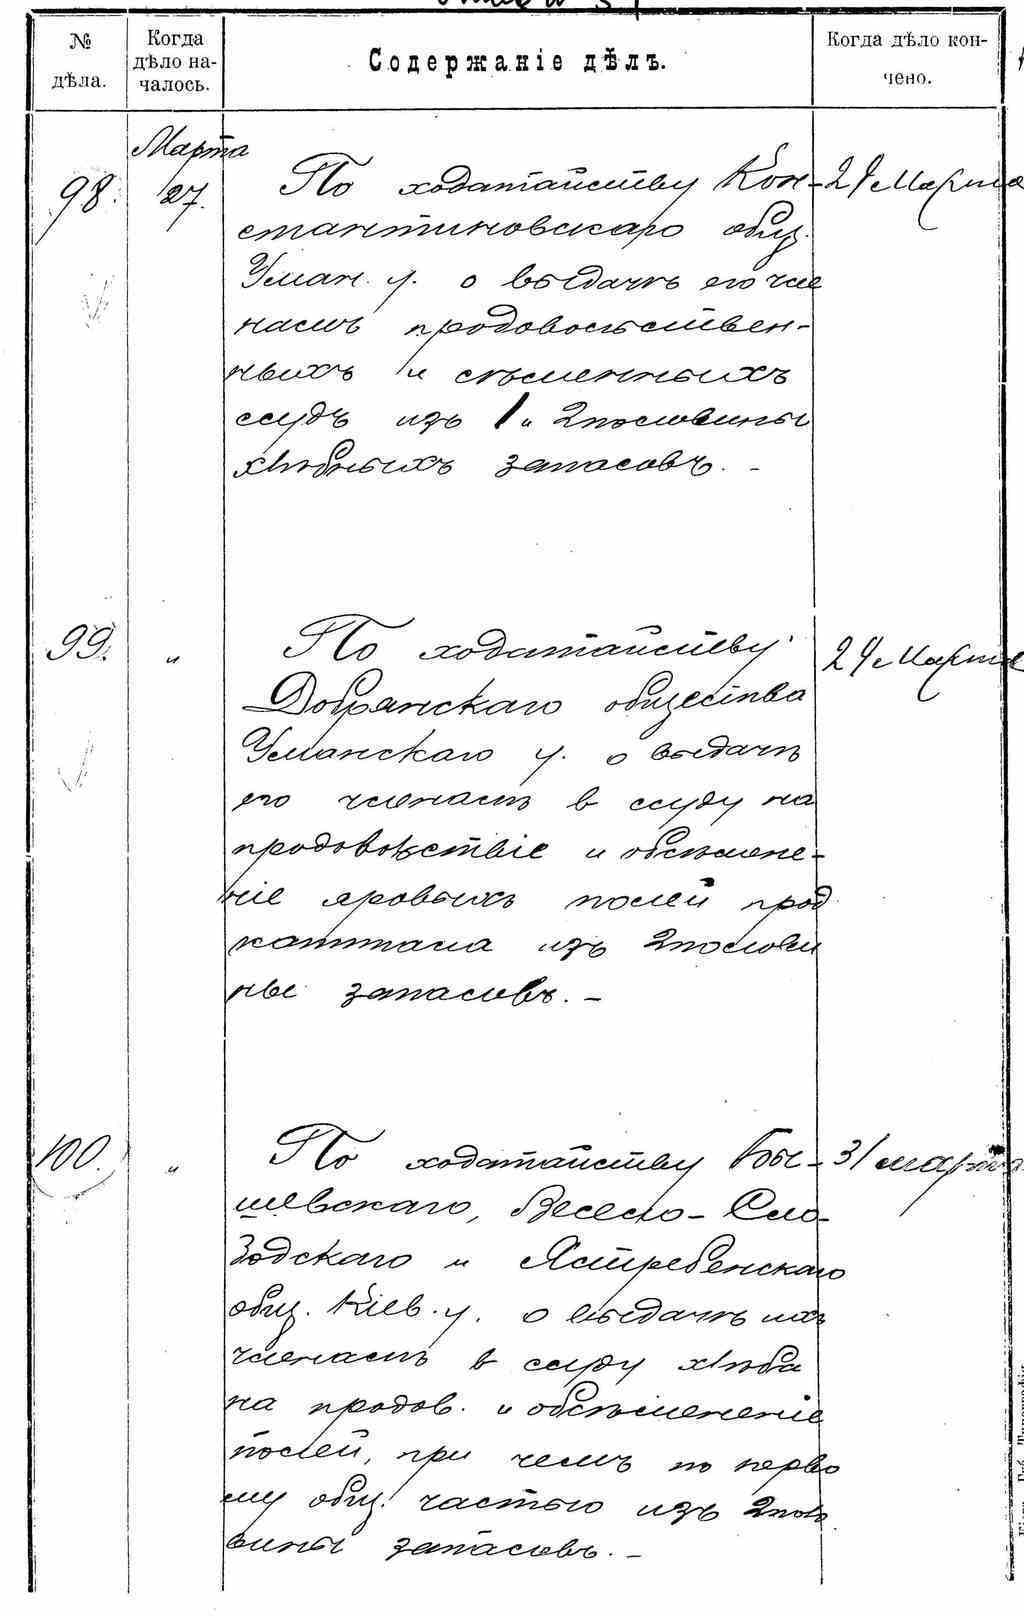 № дѣла.
Когда дѣло на-
чалось.
Содержаніе дѣлъ.
Когда дѣло кон-
чено.
Марта
98. 27. По ходатайству Кон- 29 Марта
стантиновскаго общ.
Уман. у. о выдачѣ его чле
намъ продовольствен-
ныхъ и сѣменныхъ
ссудъ изъ 1 и 2 половины
хлѣбныхъ запасовъ. -
99. " По ходатайству 29 Марта
Добрянскаго общества
Уманскаго у. о выдачѣ
его членамъ в ссуду на
продовольствіе и обсѣмене-
ніе яровыхъ полей прод
капитала изъ 2 полови
ны запасовъ. -
100. " По ходатайству Бы- 31 марта
шевскаго, Весело-Сло-
бодскаго и Ястребенскаго
общ. Кіев. у. о выдачѣ ихъ
членамъ в ссуду хлѣба
на продов. и обсѣмененіе
полей, при чемъ по перво
му общ. частью изъ 2 поло
вины запасовъ. -